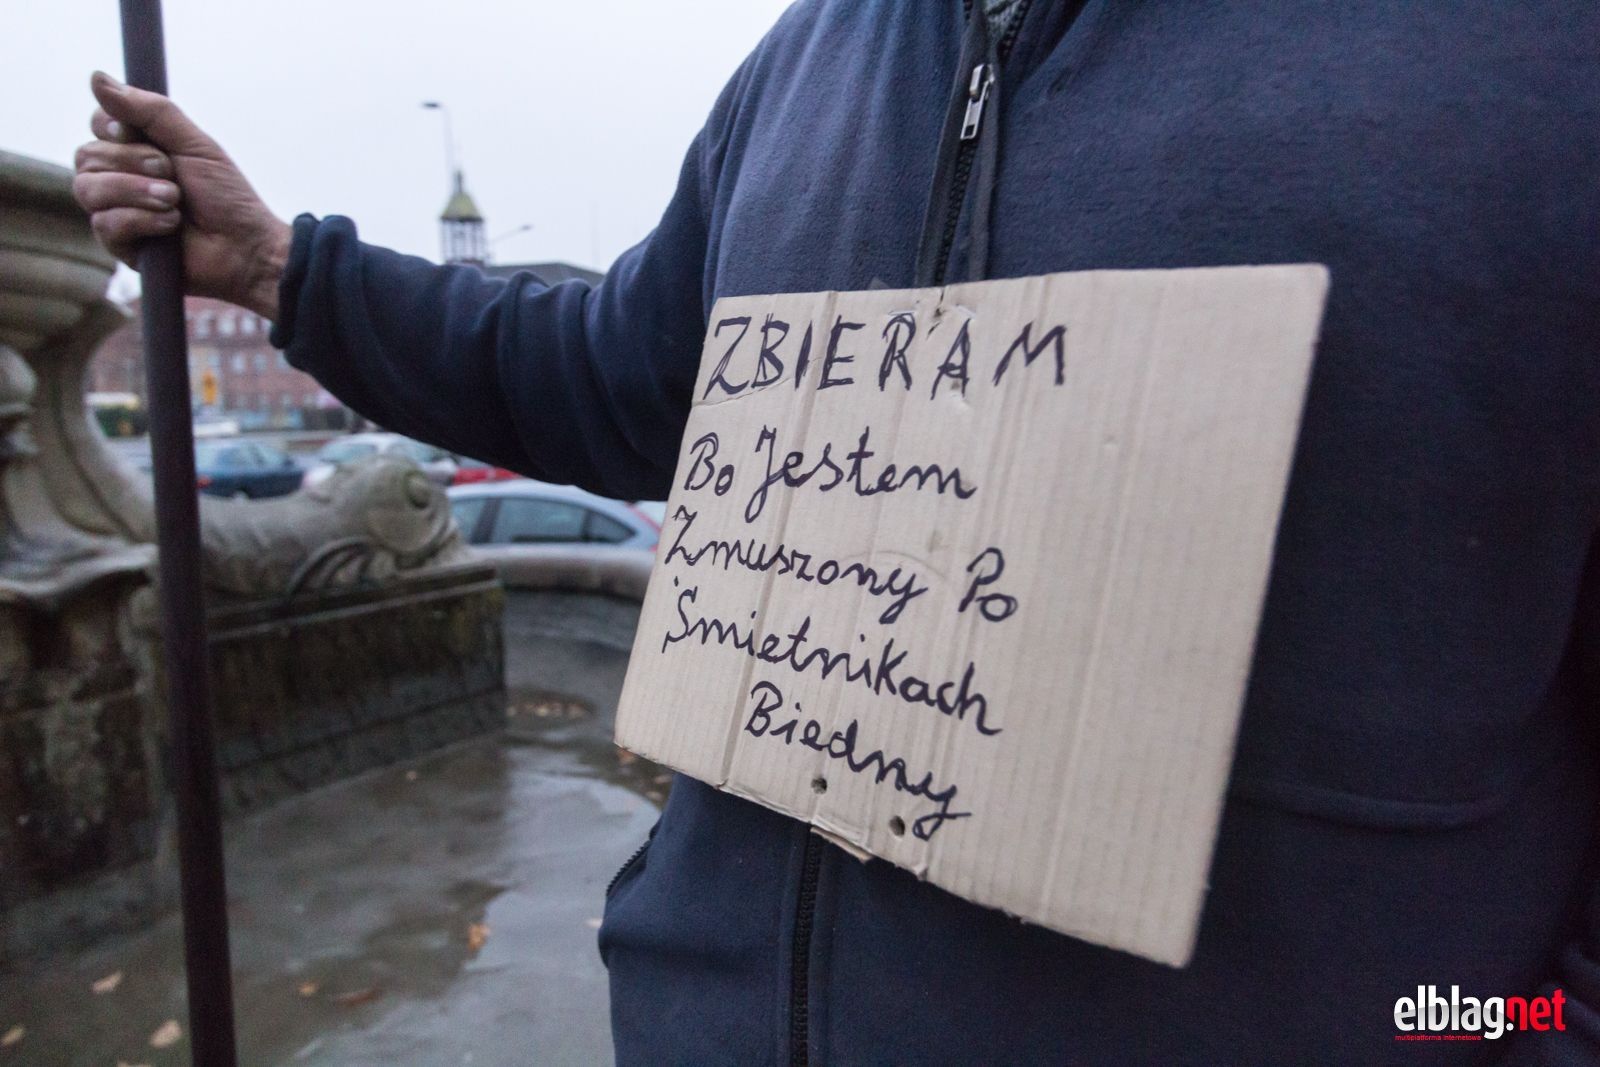 ZBIERAM
Bo Jestem
Zmuszony Po
Śmietnikach
Biedny
elblag.net
multiplatforma internetowa